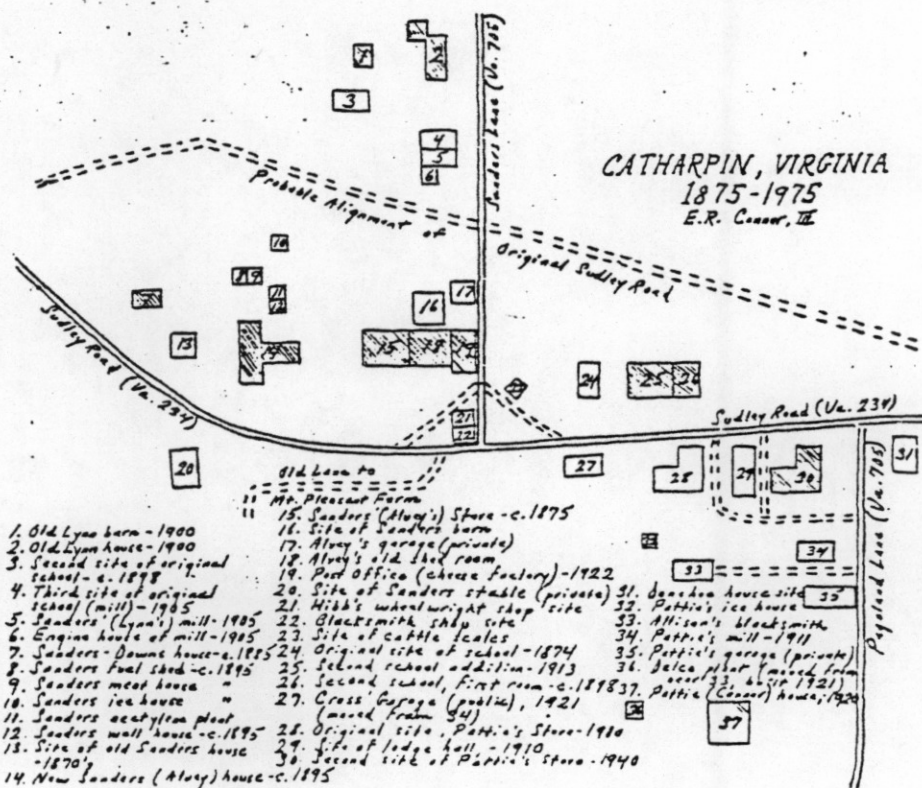 CATHARPIN, VIRGINIA
1875-1975
E.R. Conner, III
Sanders Lane (Va. 705)
Probable Alignment of
Original Sudley Road
Sudley Road (Va. 234)
Sudley Road (Va. 234)
Pageland Lane (Va. 705)
Old Lane to
Mt. Pleasant Farm
3
4
5
6
10
89
11
12
13
14
15
16
17
20
21
22
24
25
26
27
28
29
30
31
33
34
35
36
37
1. Old Lynn barn - 1900
2. Old Lynn house - 1900
3. Second site of original
school - c. 1898
4. Third site of original
school (mill) - 1905
5. Sanders' (Lynn's) mill - 1905
6. Engine house of mill - 1905
7. Sanders - Downs house - c. 1885
8. Sanders fuel shed - c. 1895
9. Sanders meat house "
10. Sanders ice house "
11. Sanders acetylene plant
12. Sanders well house - c. 1895
13. Site of old Sanders house
- 1870?
14. New Sanders (Alvey) house - c. 1895
15. Sanders (Alvey's) Store - c. 1875
16. Site of Sanders barn
17. Alvey's garage (private)
18. Alvey's old shed room
19. Post Office (cheese factory) - 1922
20. Site of Sanders stable (private)
21. Hibb's wheelwright shop site
22. Blacksmith shop site
23. Site of cattle scales
24. Original site of school - 1874
25. Second school addition - 1913
26. Second school, first room - c. 1898
27. Cross' Garage (public), 1921
(moved from 34)
28. Original site, Pattie's Store - 1910
29. Site of lodge hall - 1910
30. Second site of Pattie's Store - 1940
31. Donohoe house site
32. Pattie's ice house
33. Allison's blacksmith
34. Pattie's mill - 1911
35. Pattie's garage (private)
36. Delco plant (moved from
near 33, built 1921)
37. Pattie (Conner) house, 1920